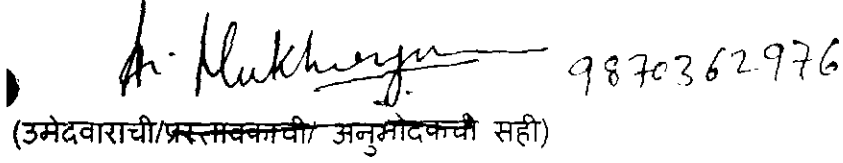 A. Mukherjee 9870362976
(उमेदवाराची/प्रस्तावकाची/ अनुमोदकाची सही)